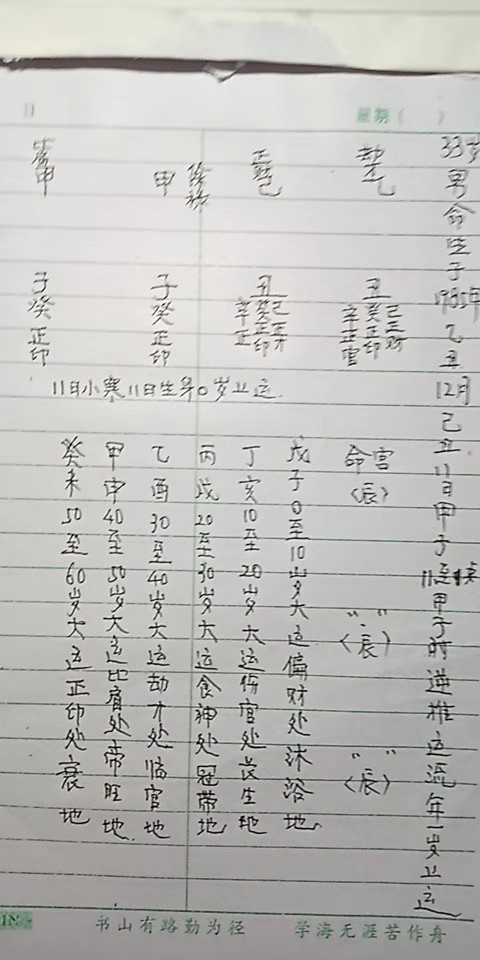 星期（ ）
33岁男命生于1985年乙丑12月己丑11日甲子11至1点甲子时逆推运流年一岁上运
劫才乙
正财己
甲
甲
丑
辛癸己
正正正
官印财
丑
辛癸己
子
癸
正
印
子
癸
正
印
11日小寒11日生算0岁上运.
命宫
〈辰〉
〃〃
〈辰〉
〃〃
〈辰〉
戊子0至10岁大运偏财处沐浴地
丁亥10至20岁大运伤官处长生地
丙戌20至30岁大运食神处冠带地
乙酉30至40岁大运劫才处临官地
甲申40至50岁大运比肩处帝旺地.
癸未50至60岁大运正印处衰地
书山有路勤为径 学海无涯苦作舟